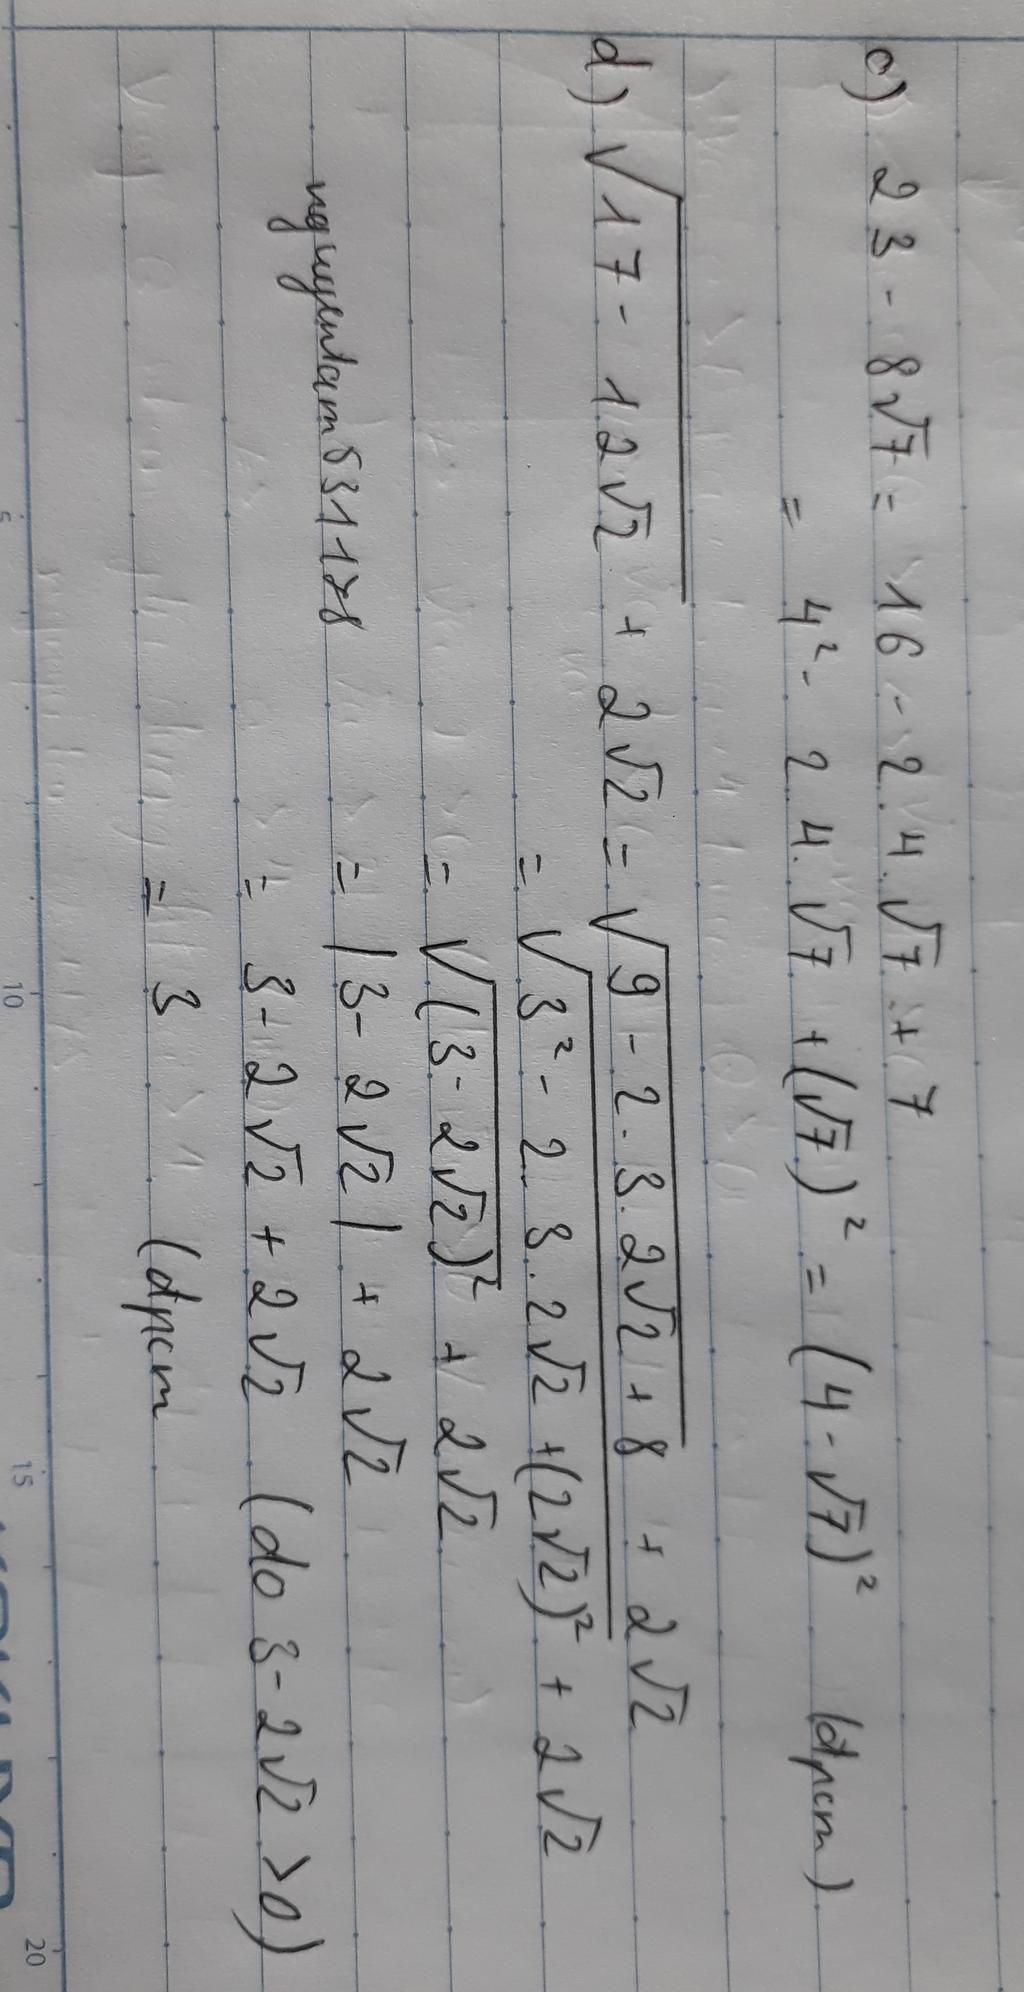 c) 23 - 8√7 = 16 - 2.4.√7 + 7
= 4² - 2.4.√7 + (√7)² = (4 - √7)² (đpcm)
d) √17 - 12√2 + 2√2 = √9 - 2.3.2√2 + 8 + 2√2
= √3² - 2.3.2√2 + (2√2)² + 2√2
= √(3 - 2√2)² + 2√2
nguyentam631128 = |3 - 2√2| + 2√2
= 3 - 2√2 + 2√2 (do 3 - 2√2 > 0)
= 3 (đpcm
5 10 15 20